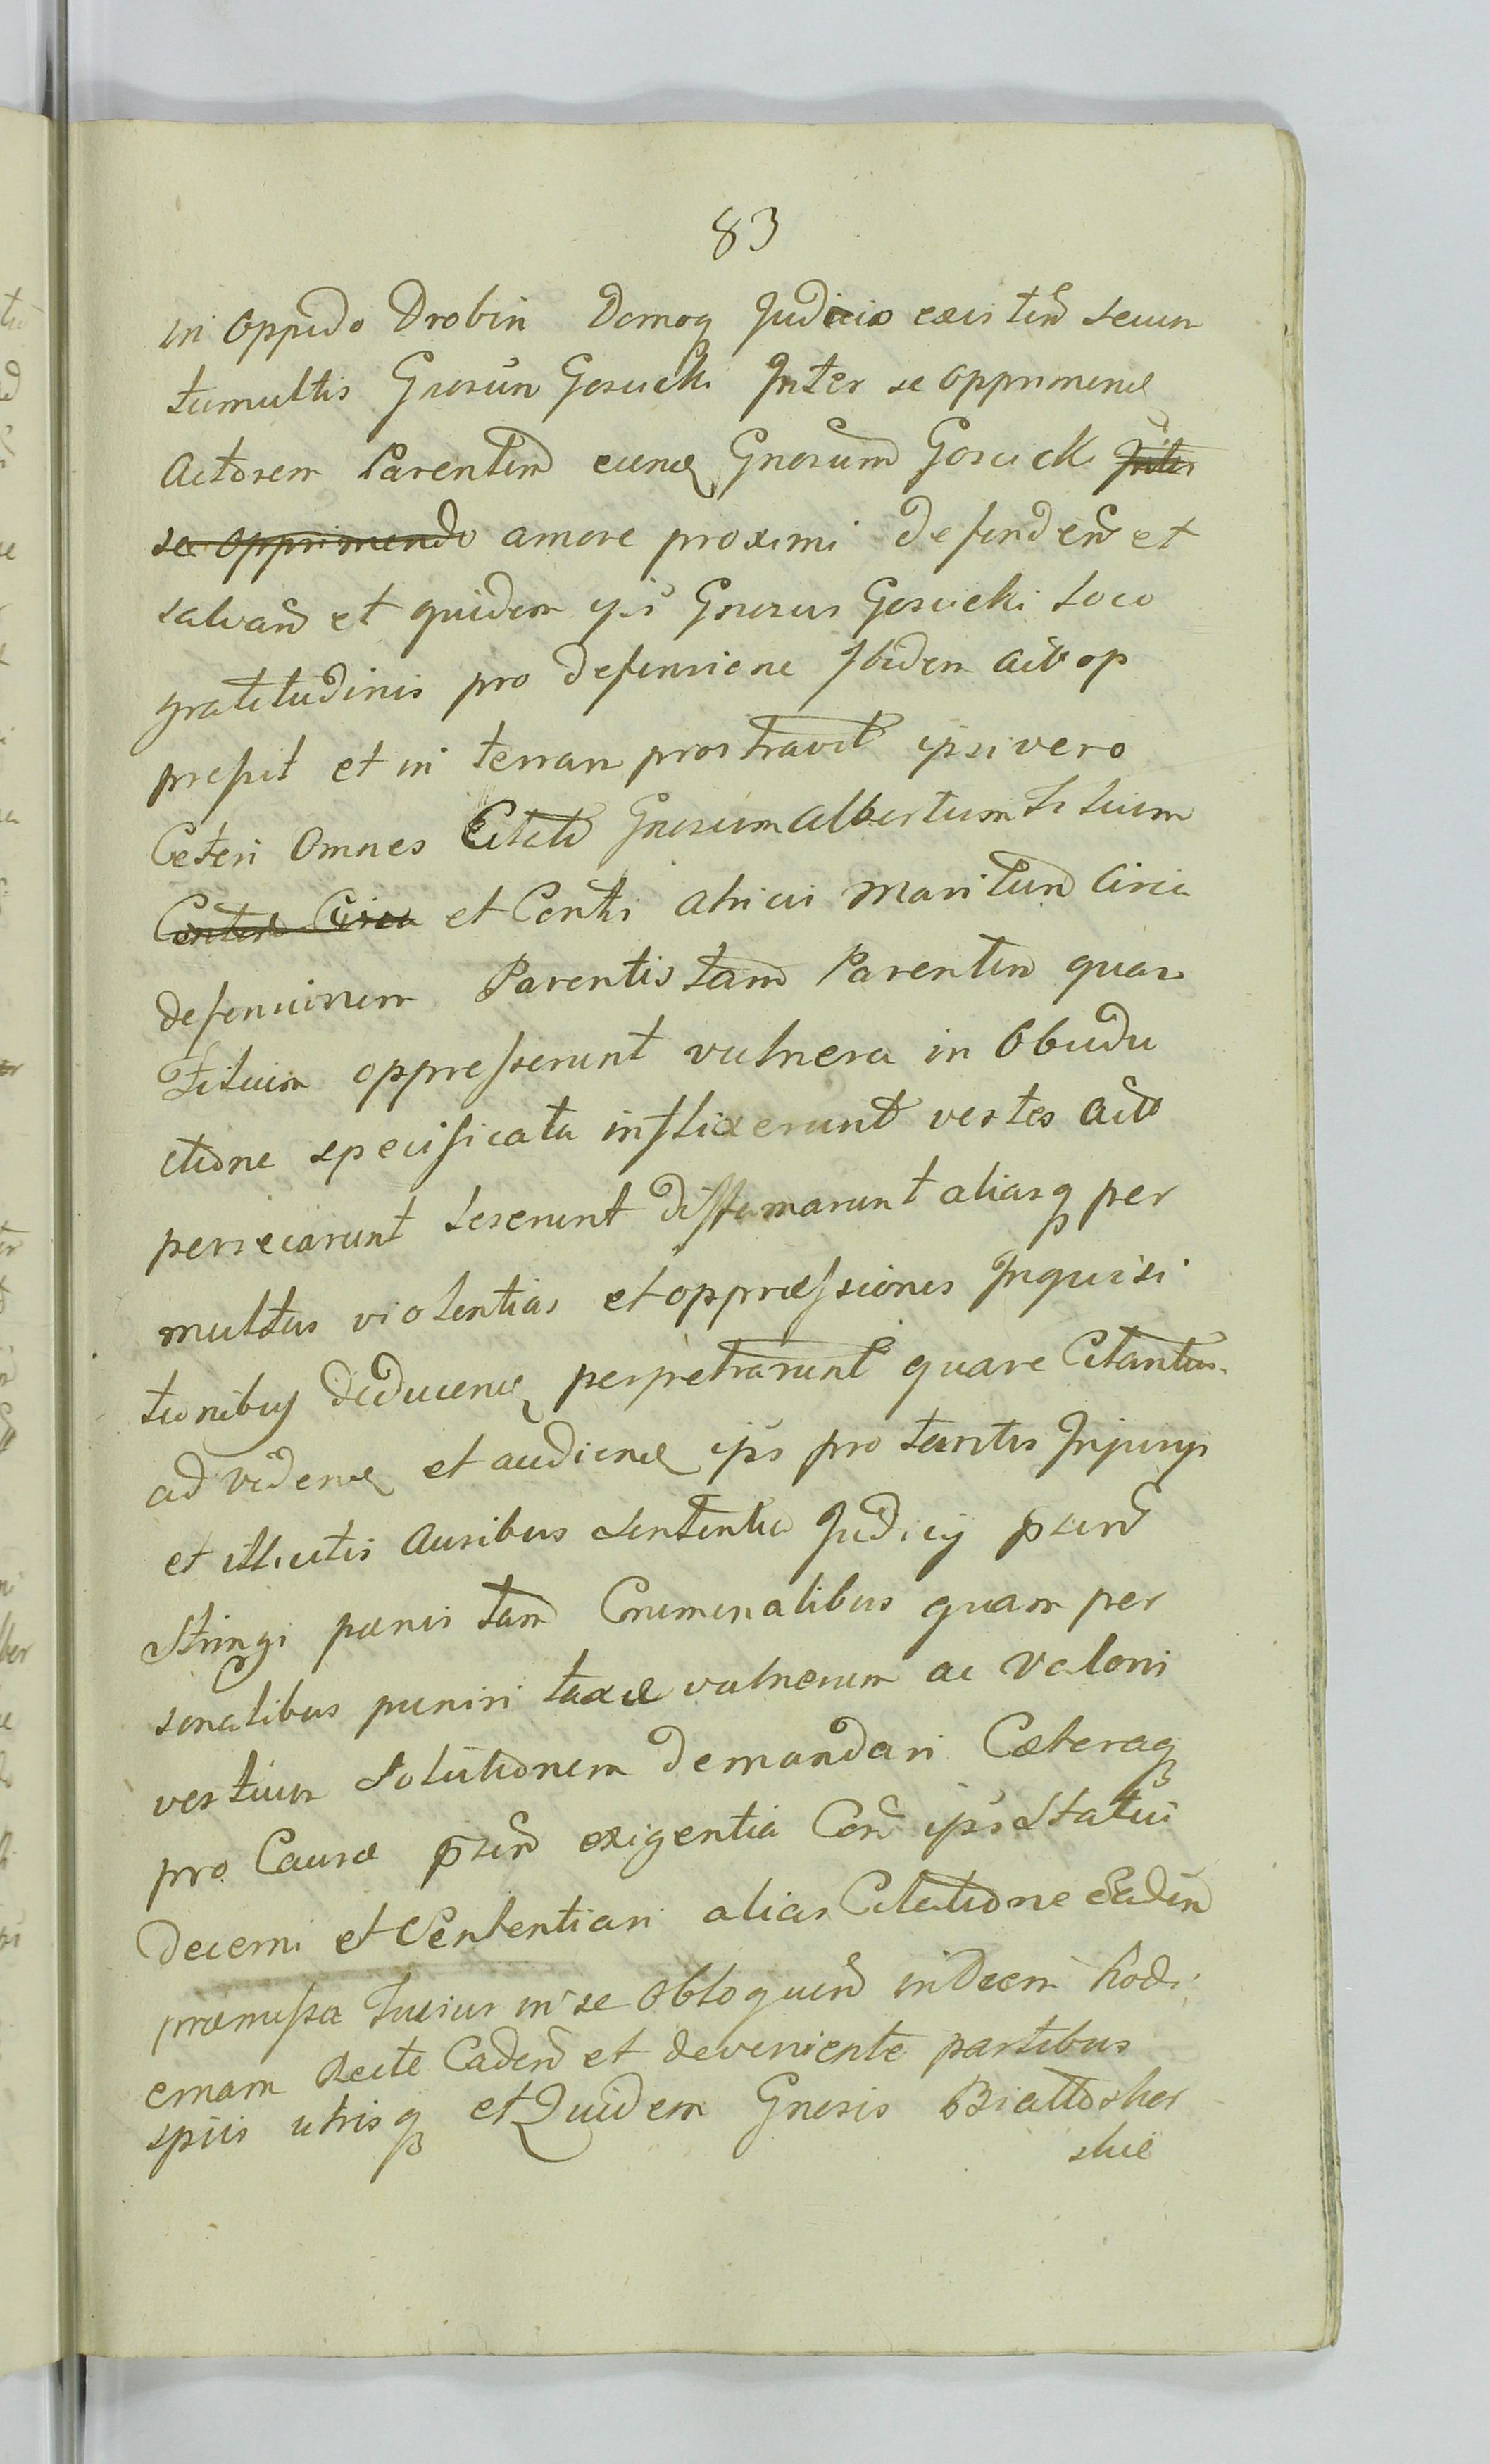 83
in Oppido Drobin Domoq Judicio existen secum
tumultis Grosun Gosicki Inter se opprimend
Actorem Parentem eund Gnosum Gosicki Inter
se opprimendo amore proximi defenden et
salvan et quidem ips Gnosus Gosicki Loco
gratitudinis pro defensione Ibidem op
pressit et in terram prostravit ipsi vero
Ceteri Omnes Citati Gnosum Albertum Filium
Circa et atrici Maritum Circa
defensionem Parentis tam Parentem quam
Filium oppresserunt vulnera in Obudu
ctione specificata inflixerunt vestes
persecarunt leserunt diffamarunt aliasq per
multas violentias et oppressiones Inquisi
tionibus deducend perpetrarunt quare Citantur
ad vidend et audiend ips pro tantis Injurys
et illicitis Ausibus Sententia Judicy psen
stringi pænis tam Criminalibus quam per
sonalibus puniri taxæ vulnerum ac Valoris
vestium Solutionem demandari Cæteraq
pro Causæ psen exigentia Con ips Statui
decerni et Sententiari alias Citatione Eadem
præmissa Latius in se Obloquen in Diem hodi
ernam Recte Caden et deveniente partibus
spiis utrisq et Quidem Gnosis Biallosker
skie